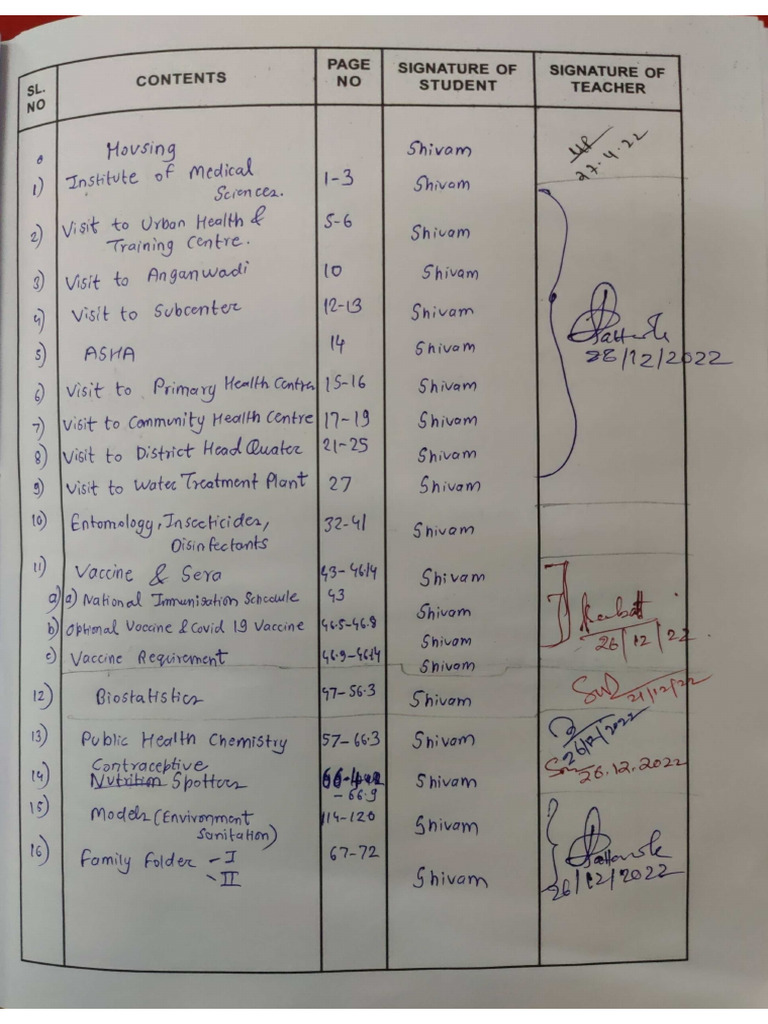 SL. NO CONTENTS PAGE NO SIGNATURE OF STUDENT SIGNATURE OF TEACHER
0 Housing Shivam 27.4.22
1) Institute of Medical Sciences. 1-3 Shivam
2) Visit to Urban Health & Training Centre. 5-6 Shivam
3) Visit to Anganwadi 10 Shivam
4) Visit to Subcenter 12-13 Shivam
28/12/2022
5) ASHA 14 Shivam
6) Visit to Primary Health Centre 15-16 Shivam
7) Visit to Community Health Centre 17-19 Shivam
8) Visit to District Head Quater 21-25 Shivam
9) Visit to Water Treatment Plant 27 Shivam
10) Entomology, Insecticides, Disinfectants 32-41 Shivam
11) Vaccine & Sera 43-46.14 Shivam
a) a) National Immunisation Schedule 43 Shivam
b) Optional Vaccine & Covid 19 Vaccine 46.5-46.8 Shivam
26/12/22
c) Vaccine Requirement 46.9-46.14 Shivam
12) Biostatistics 47-56.3 Shivam 21/12/22
13) Public Health Chemistry 57-66.3 Shivam 26/12/2022
14) Contraceptive Nutrition Spotters -66.9 Shivam 26.12.2022
15) Models (Environment Sanitation) 114-120 Shivam
16) Family Folder -I 67-72
-II Shivam 26/12/2022